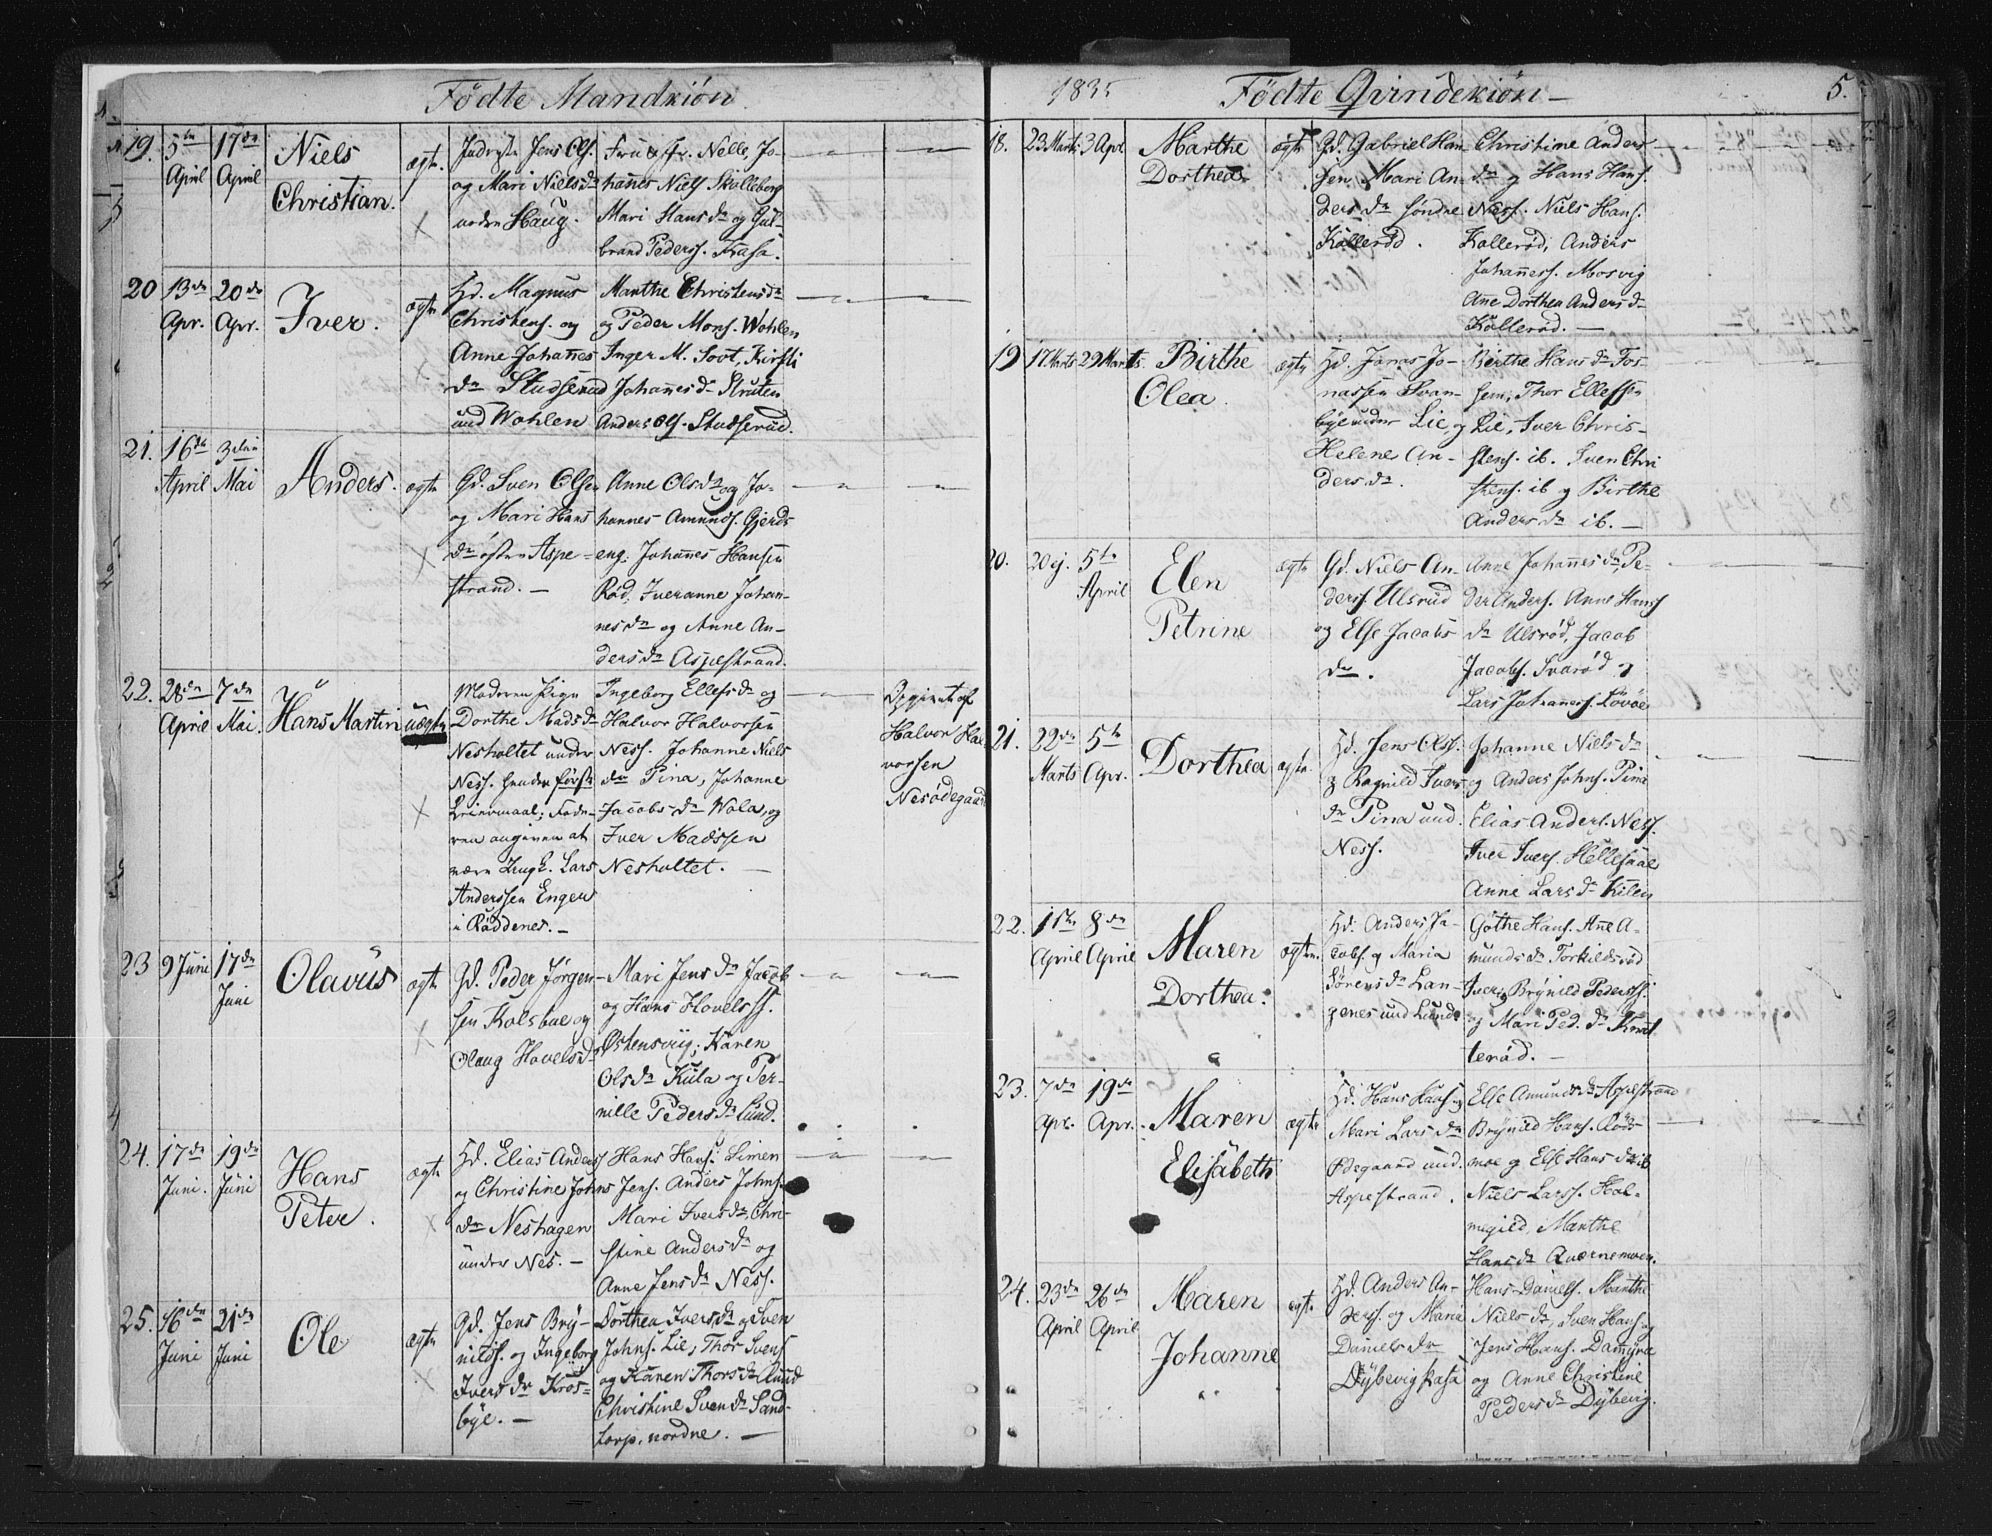 Födte Mandkiön
19. 5te April 17de April Niels Christian. ægte.
Jens Ols.
og Mari Niels dr
Haug.
Nelle, Jo-
hannes Niels Skolleborg
Mari Hans dr og Gul-
brand Peders. Kasa.
20 13de Apr. 20de Apr. Iver. ægte
Hd. Magnus
Christens. og
Anne Johannes
dr Studserud
und Wohlen
Marthe Christens dr
og Peder Mons. Wohlen
Inger M. Kirsti
Johannes dr
Anders Ols. Studserud.
21. 16de April 3die Mai Anders. ægte
Gd. Sven Olsen
og Mari Hans
dr østre Aspe-
strand. —
Anne Ols dr og Jo-
hannes Amunds. Gjerds-
eng. Johannes Hansen
Röd, Iveranne Johan-
nes dr og Anne An-
ders dr Aspestrand.
22. 28de April 7de Mai. Hans Martin uægte
Moderen Pige
Dorthe Mads dr
Nesholtet under
Ness. hendes første
Leiermaal; Fade-
ren angiven at
være Ungk. Lars
Anderssen Engen
i Röddenes. —
Ingeborg Ellefs dr og
Halvor Halvorsen
Ness. Johanne Niels
dr Pina, Johanne
Jacobs dr Wola, og
Iver Madssen
Nesholtet. —
Opgivet af
Halvor Hal-
vorsen
Nesødegaard
23 9 Juni 17de Juni Olavus ægte
Gd. Peder Jörgen-
sen Kolsboe og
Olaug Hovels dr
Mari Jens dr Jacob
og Hans Hovels ss.
Østensvig; Karen
Ols dr Kula og Per-
nille Peders dr Lund.
24. 17de Juni. 19de Juni Hans Peter. ægte
Hd. Elias Anders
og Christine Johns
dr Neshagen
under Nes. —
Hans Hans. Simen
Jens. Anders Johns.
Mari Ivers dr, Chri-
stine Anders dr og
Anne Jens dr Ness.
25. 16de Juni 21de Juni Ole ægte
Gd. Jens Bry-
nilds. og Ingeborg
Ivers dr Kros-
bye. —
Dorthea Ivers dr og Sven
Johns. Lie, Thor Svens
og Karen Thors dr Rund
Christine Svens dr Sand-
torp, nordre. —
1835 Födte Qvindekiön — 5.
18. 23 Marts 3 Apr. Marthe Dorthea ægte
Gd. Gabriel Han-
sen Mari An-
ders dr söndre
Kolleröd.
Christine Anders
dr og Hans Hans.
Ness. Niels Hans.
Kolleröd, Anders
Johanness. Mosvig
Ane Dorthea Anders dr
Kolleröd. —
19 17 Marts 29 Marts. Birthe Olea. ægte
Hd. Jonas Jo-
nassen Svan-
bye under Lie, og
Helene An-
ders dr.
Berthe Hans dr Fos-
sem, Thor Ellefsen
Lie, Iver Chris-
stens. ib. Sven Chri
stens. ib og Birthe
Anders dr ib. —
20. 20 ej. 5te April Elen Petrine ægte
Gd. Niels An-
derss. Ulsrud
og Else Jacobs
dr.
Anne Johannes dr, Pe-
der Anders. Anne Hans
dr Ulsröd, Jacob
Jacobs. Svaröd og
Lars Johanness. Lövöe
21. 22de Marts 5te Apr. Dorthea ægte.
Hd. Jens Olss.
og Ragnild Ivers
dr Pina und.
Ness.
Johanne Niels dr
og Anders Johns. Pina
Elias Anders. Ness.
Iver Ivers. Hellesaae
Anne Lars dr Kilen
22. 1ste April 8de April Maren Dorthea. ægte.
Hd. Anders Ja-
cobs. og Maria
Sörens dr Lan-
genes und Lund
Göthe Hans. Ane A-
munds dr Torkildsröd
Iver, Brynild Pederss.
og Mari Ped. dr Knat-
teröd. —
23. 7de Apr. 19de Apr. Maren Elisabeth ægte
Hd. Hans Hans. og
Mari Lars dr
Ødegaard und.
Aspestrand.
Else Amunds dr Aspestrand
Brynild Hans. Röds-
moe og Else Hans dr ib
Niels Larss. Hol-
megild, Marthe
Hans dr Qværnemoen.
24. 23de April 26de April Maren Johanne ægte.
Hd. Anders An-
derss. og Maria
Daniels dr
Dybevigkasa
Hans Daniels. Marthe
Niels dr, Sven Hans. og
Jens Hans. Damyra
og Anne Christine
Peders dr Dybevig.